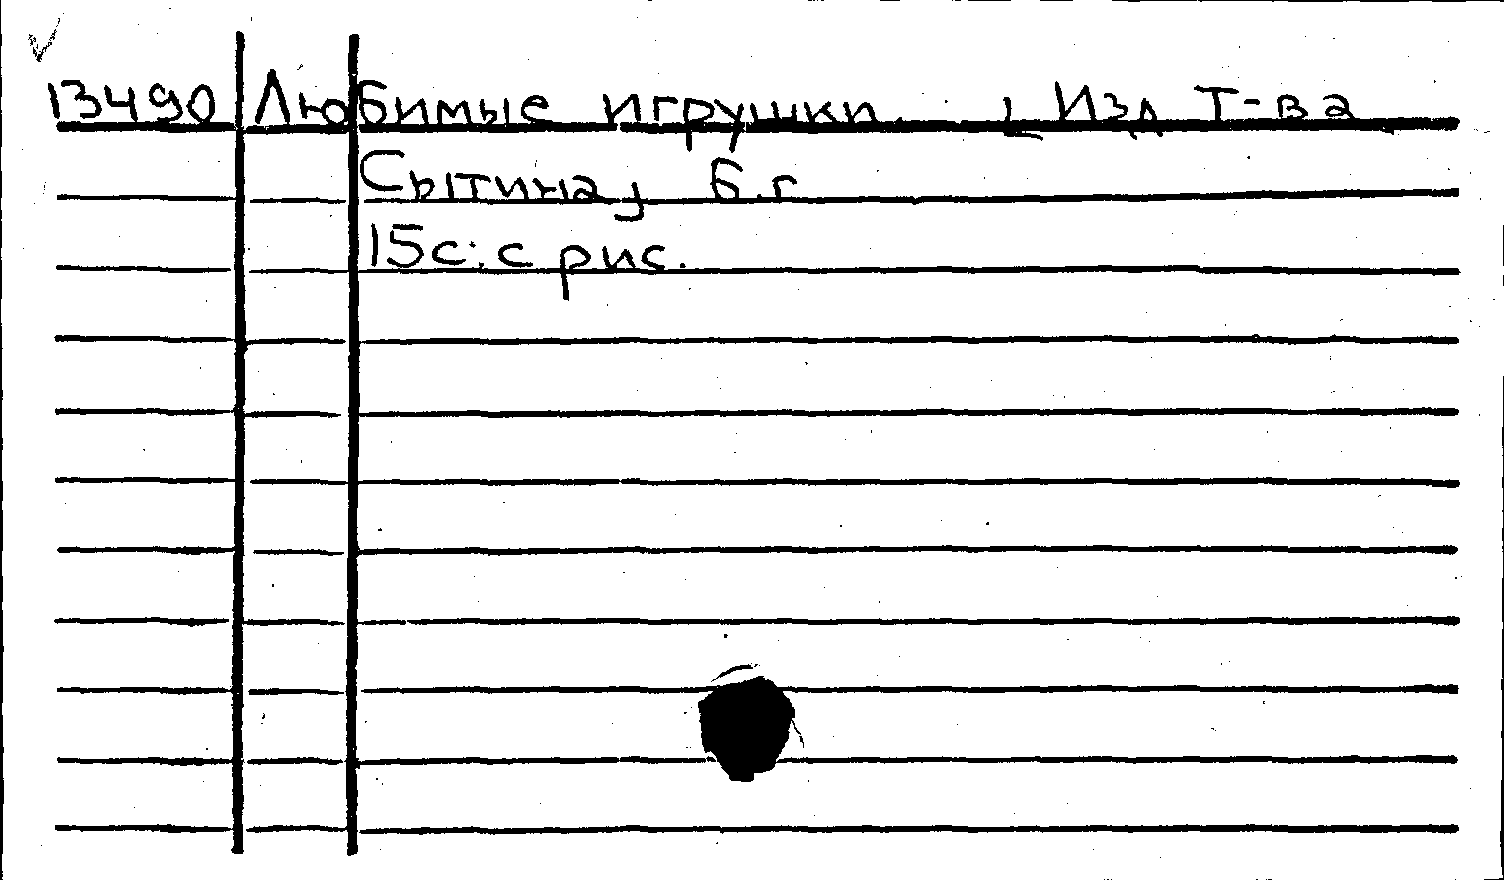 13490 Любимые игрушки. [Изд Т-ва
Сытина] б.г
15с.: с рис.